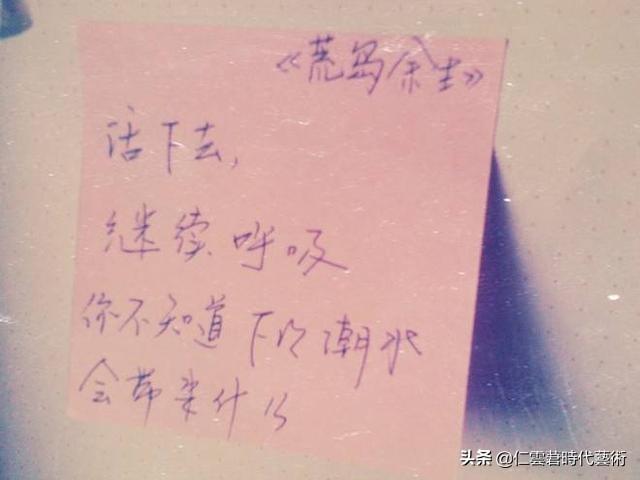 《荒岛余生》
活下去,
继续呼吸
你不知道下次潮水
会带来什么
头条 @仁雲碁時代藝術